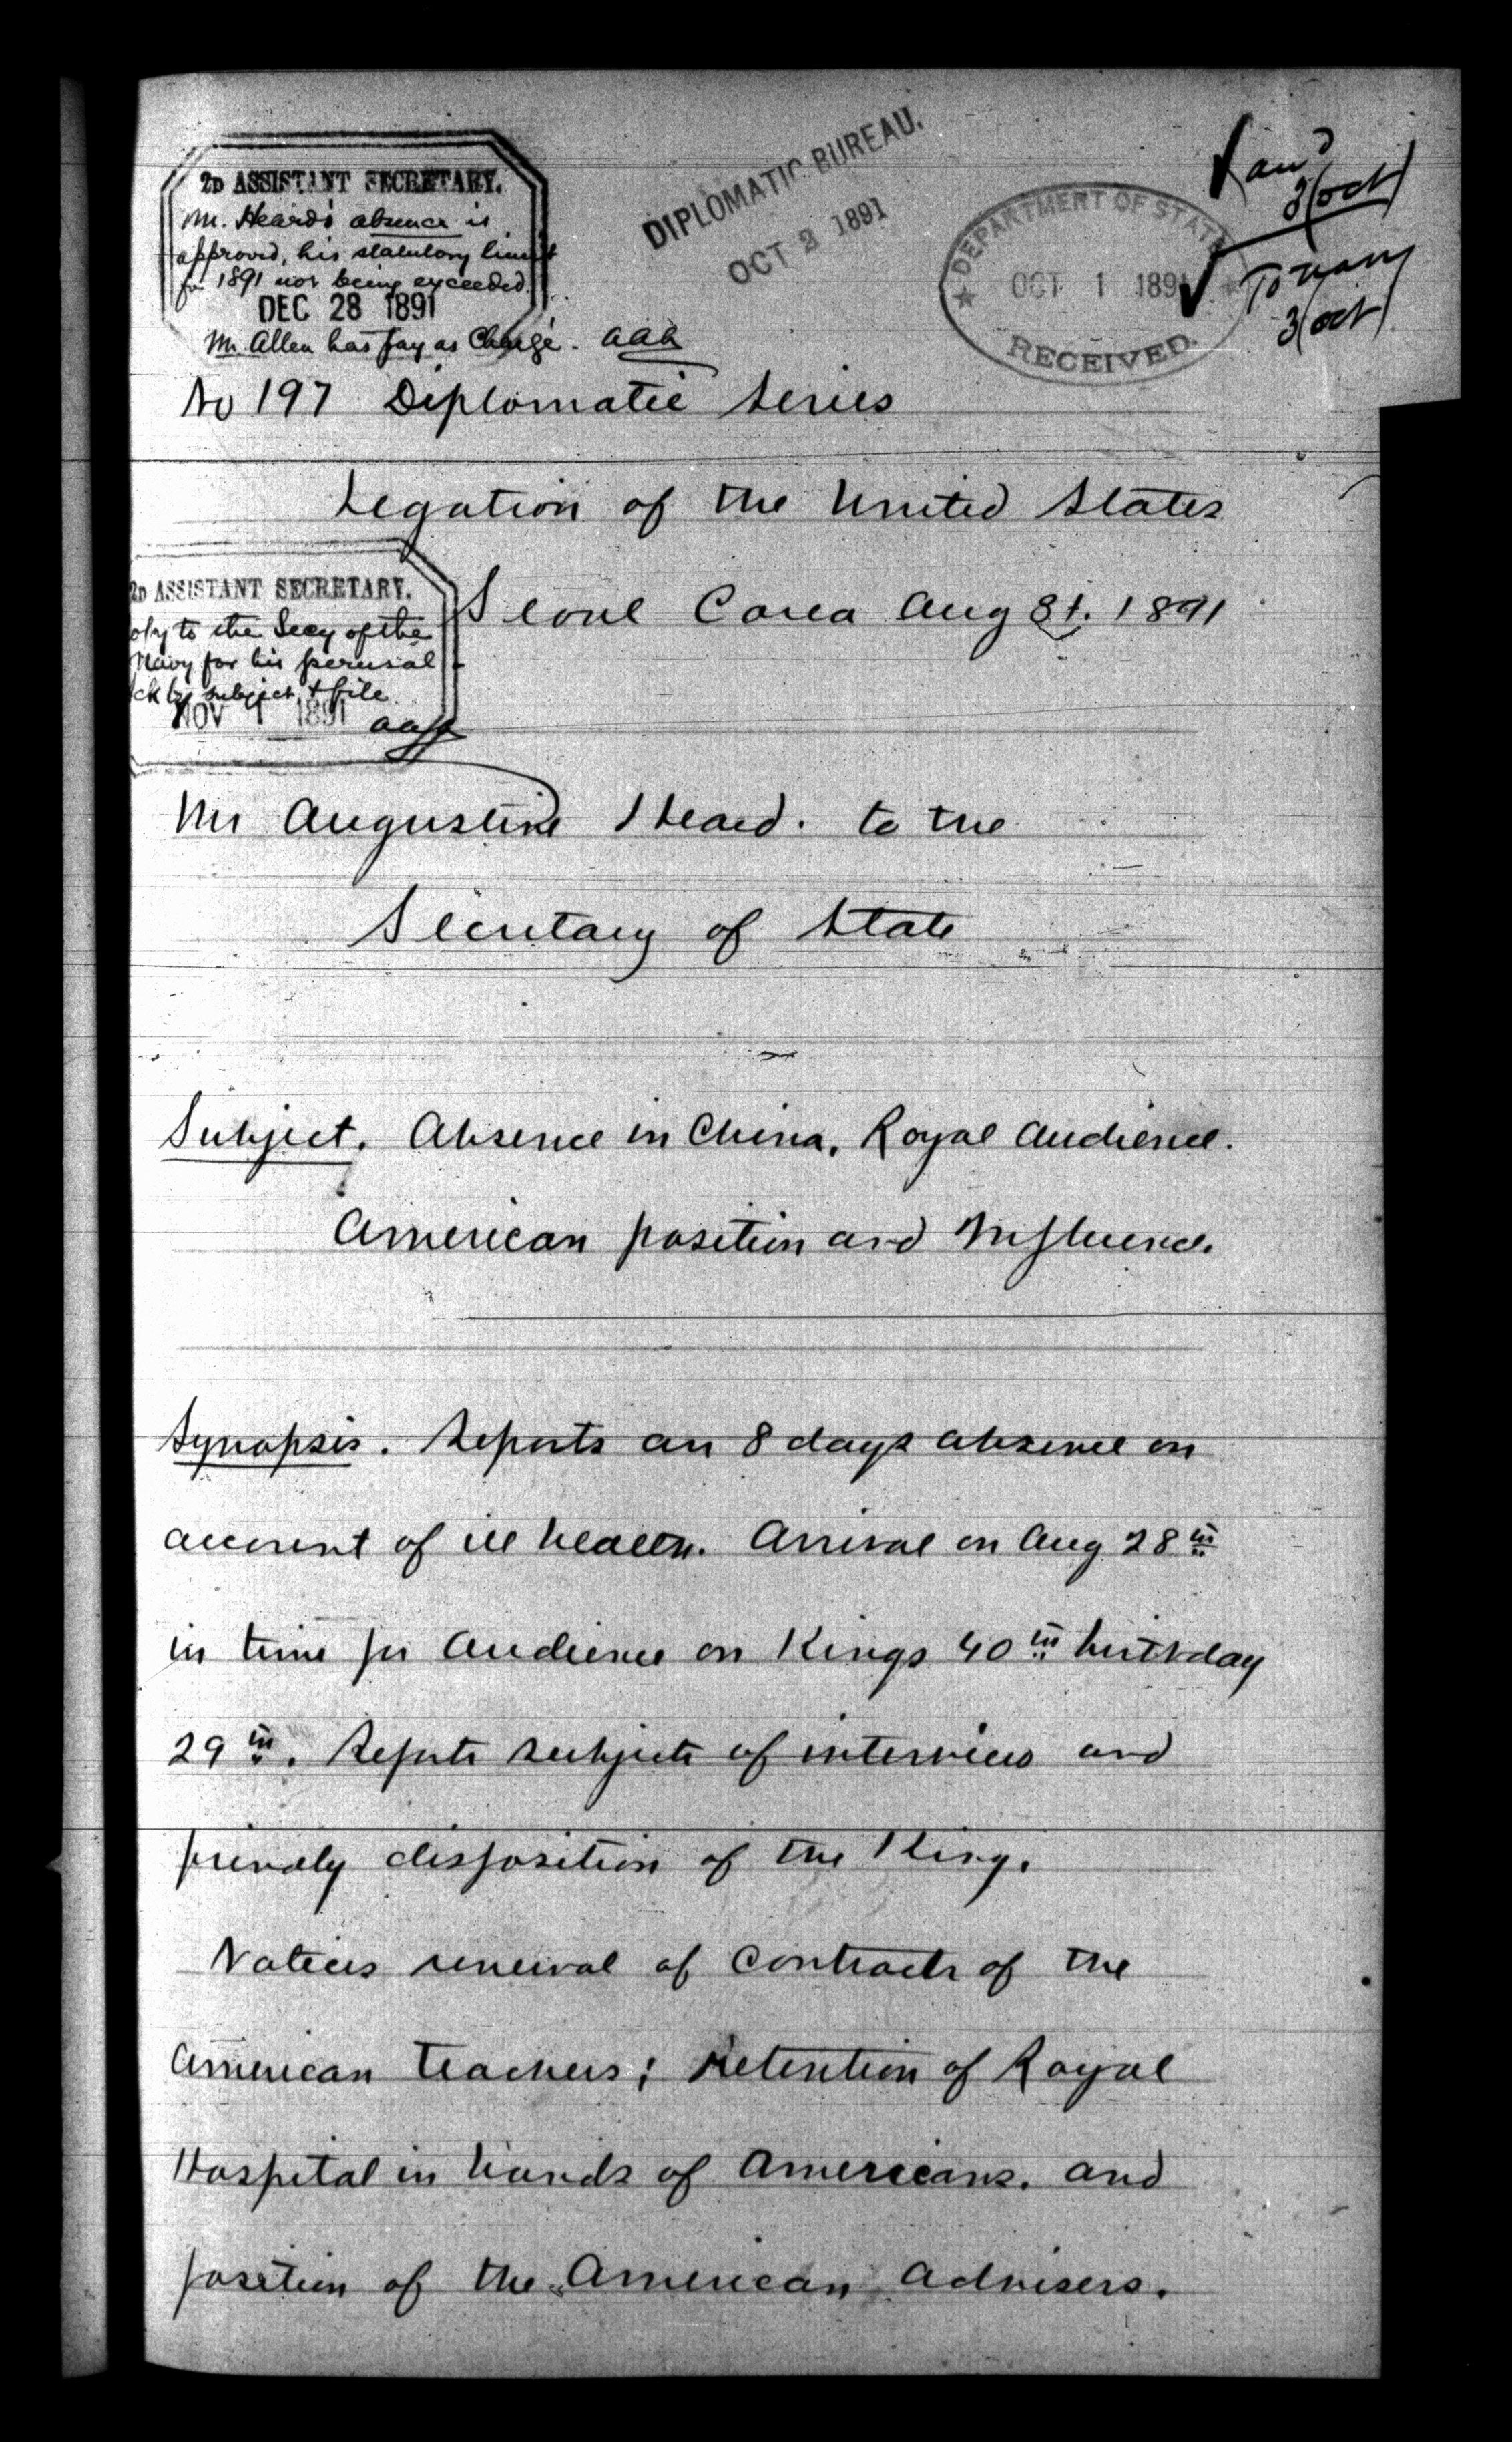 2D ASSISTANT SECRETARY.
Mr. Heard's absence is
approved, his statutory limit
for 1891 not being exceeded.
DEC 28 1891
Mr. Allen has pay as Chargé. AAA
DIPLOMATIC BUREAU.
OCT 2 1891
DEPARTMENT OF STATE
OCT 1 1891
RECEIVED.
3 Oct
To Navy
3 Oct
No 197 Diplomatic Series
Legation of the United States
Seoul Corea Aug 31. 1891
2D ASSISTANT SECRETARY.
opy to the Secy of the
Navy for his perusal
ck by subject, & file
NOV 1 1891 AAA
Mr Augustine Heard. to the
Secretary of State
Subject. Absence in China, Royal Audience.
American position and Influence.
Synopsis. Reports an 8 days absence on
account of ill health. Arrival on Aug 28th
in time for Audience on Kings 40th birthday
29th. Reports subjects of interview and
friendly disposition of the King.
Notices renewal of contracts of the
American teachers; Retention of Royal
Hospital in hands of Americans. and
position of the American Advisers.